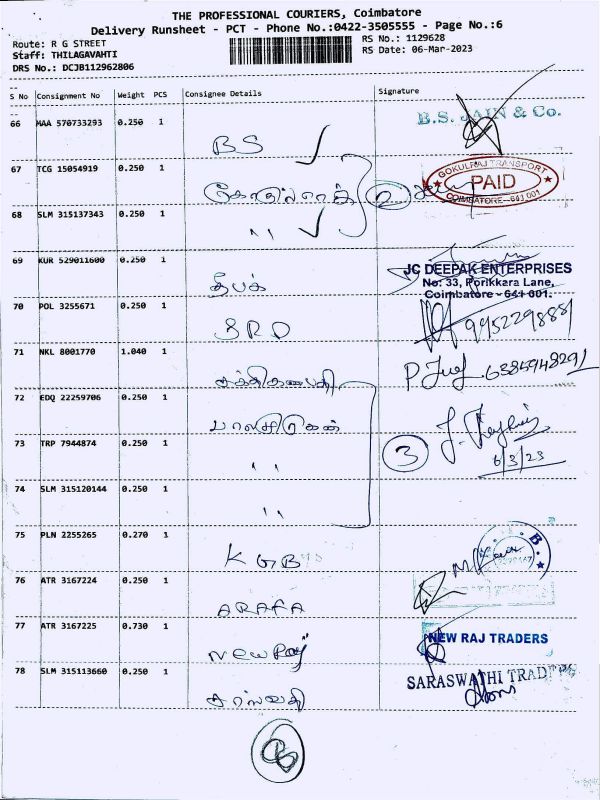 THE PROFESSIONAL COURIERS, Coimbatore
Delivery Runsheet - PCT - Phone No.:0422-3505555 - Page No.:6
Route: R G STREET
RS No.: 1129628
Staff: THILAGAVAHTI
RS Date: 06-Mar-2023
DRS No.: DCJB112962806
S No Consignment No Weight PCS Consignee Details Signature
66 MAA 570733293 0.250 1
B.S. JAIN & Co.
BS
67 TCG 15054919 0.250 1
GOKULRAJ TRANSPORT
PAID
COIMBATORE - 641 001
2
68 SLM 315137343 0.250 1
,,
69 KUR 529011600 0.250 1
JC DEEPAK ENTERPRISES
No: 33, Porikkara Lane,
Coimbatore - 641 001.
தீபக்
70 POL 3255671 0.250 1
SRD
9952298881
71 NKL 8001770 1.040 1
6385948291
சக்திகணபதி
72 EDQ 22259706 0.250 1
பாலமுருகன்
73 TRP 7944874 0.250 1
,,
3
6/3/23
74 SLM 315120144 0.250 1
,,
75 PLN 2255265 0.270 1
KGB
76 ATR 3167224 0.250 1
ARAFA
77 ATR 3167225 0.730 1
NEW RAJ TRADERS
New Raj
78 SLM 315113660 0.250 1
SARASWATHI TRADERS